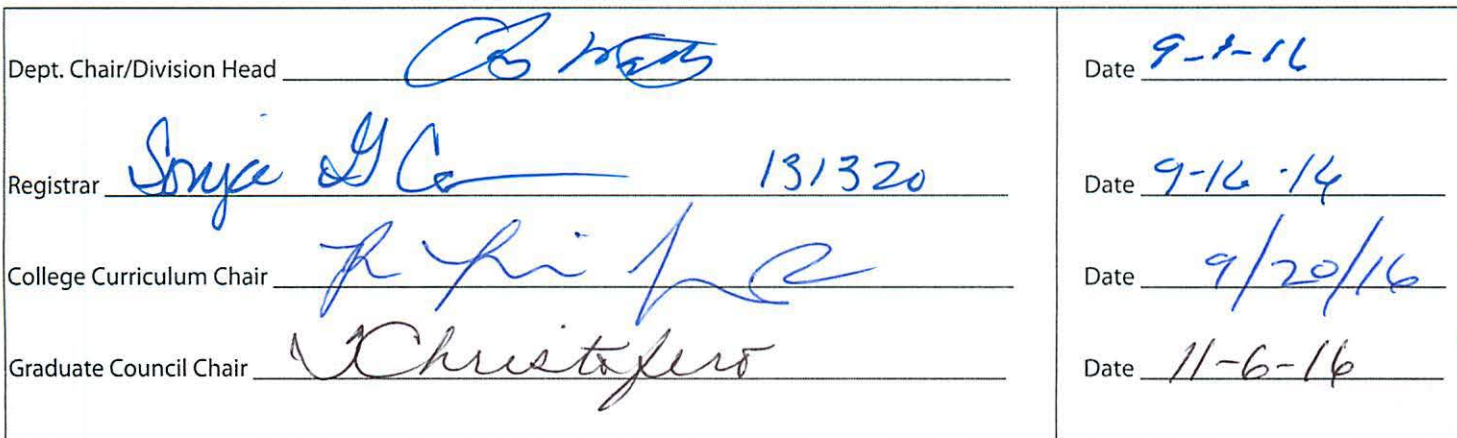 Dept. Chair/Division Head Date 9-1-16
Registrar Sonja G 131320 Date 9-16-16
College Curriculum Chair Date 9/20/16
Graduate Council Chair TChristofero Date 11-6-16